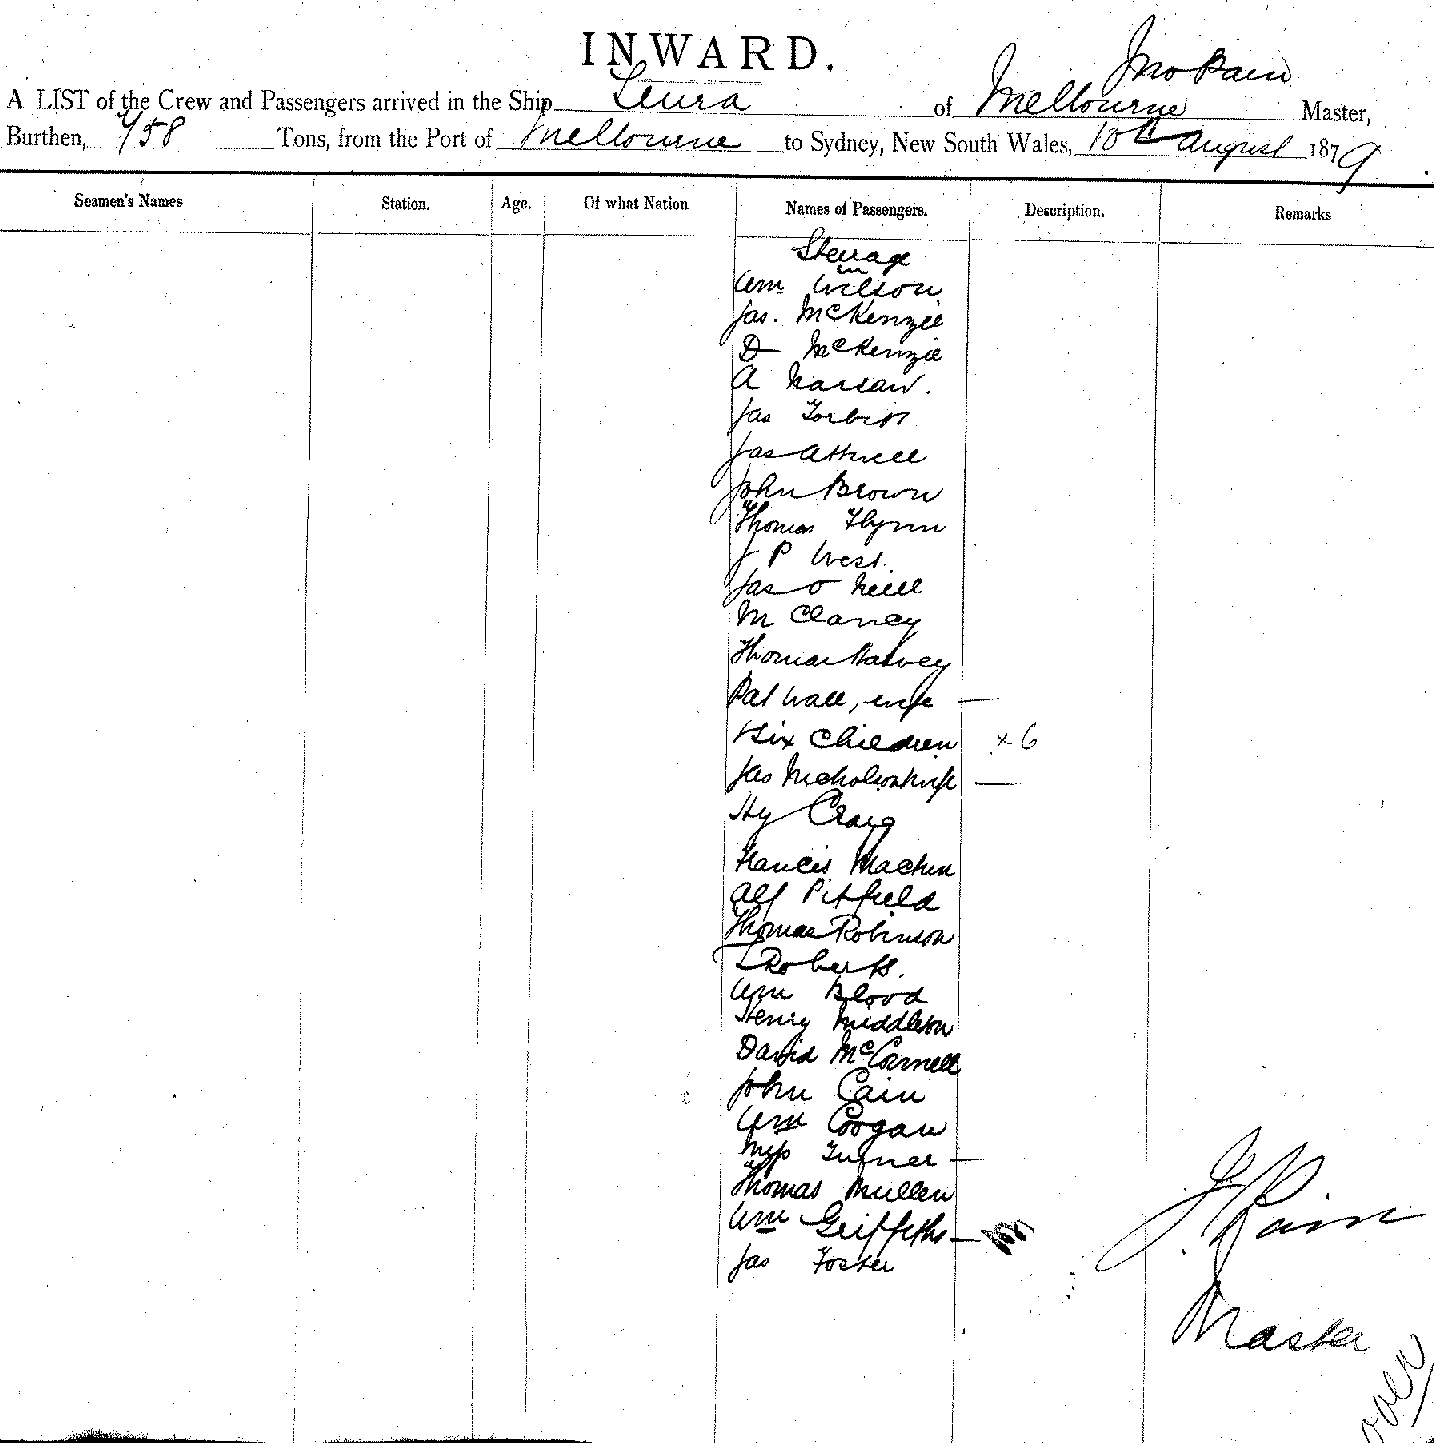 INWARD.
Jno Pain
A LIST of the Crew and Passengers arrived in the Ship Leura of Melbourne Master,
Burthen, 458 Tons, from the Port of Melbourne to Sydney, New South Wales, 10th August 1879
Seamen's Names Station. Age. Of what Nation Names of Passengers. Description. Remarks
Steerage
Wm Wilson
Jas. McKenzie
D McKenzie
A
Jas
Jas Attwell
John Brown
Thomas Flynn
J P West.
Jas O Neill
M Clancy
Thomas Harvey
Pat Wall, wife —
& Six Children × 6
Jas Nicholson & wife —
Hy Craig
Francis Machin
Alf Pitfield
Thomas Robinson
Roberts.
Wm Blood
Henry Middleton
David McConnell
John Cain
Wm Coogan
Turner —
Thomas Mullen
Wm Griffiths —
Jas Foster
J Pain
Master
over